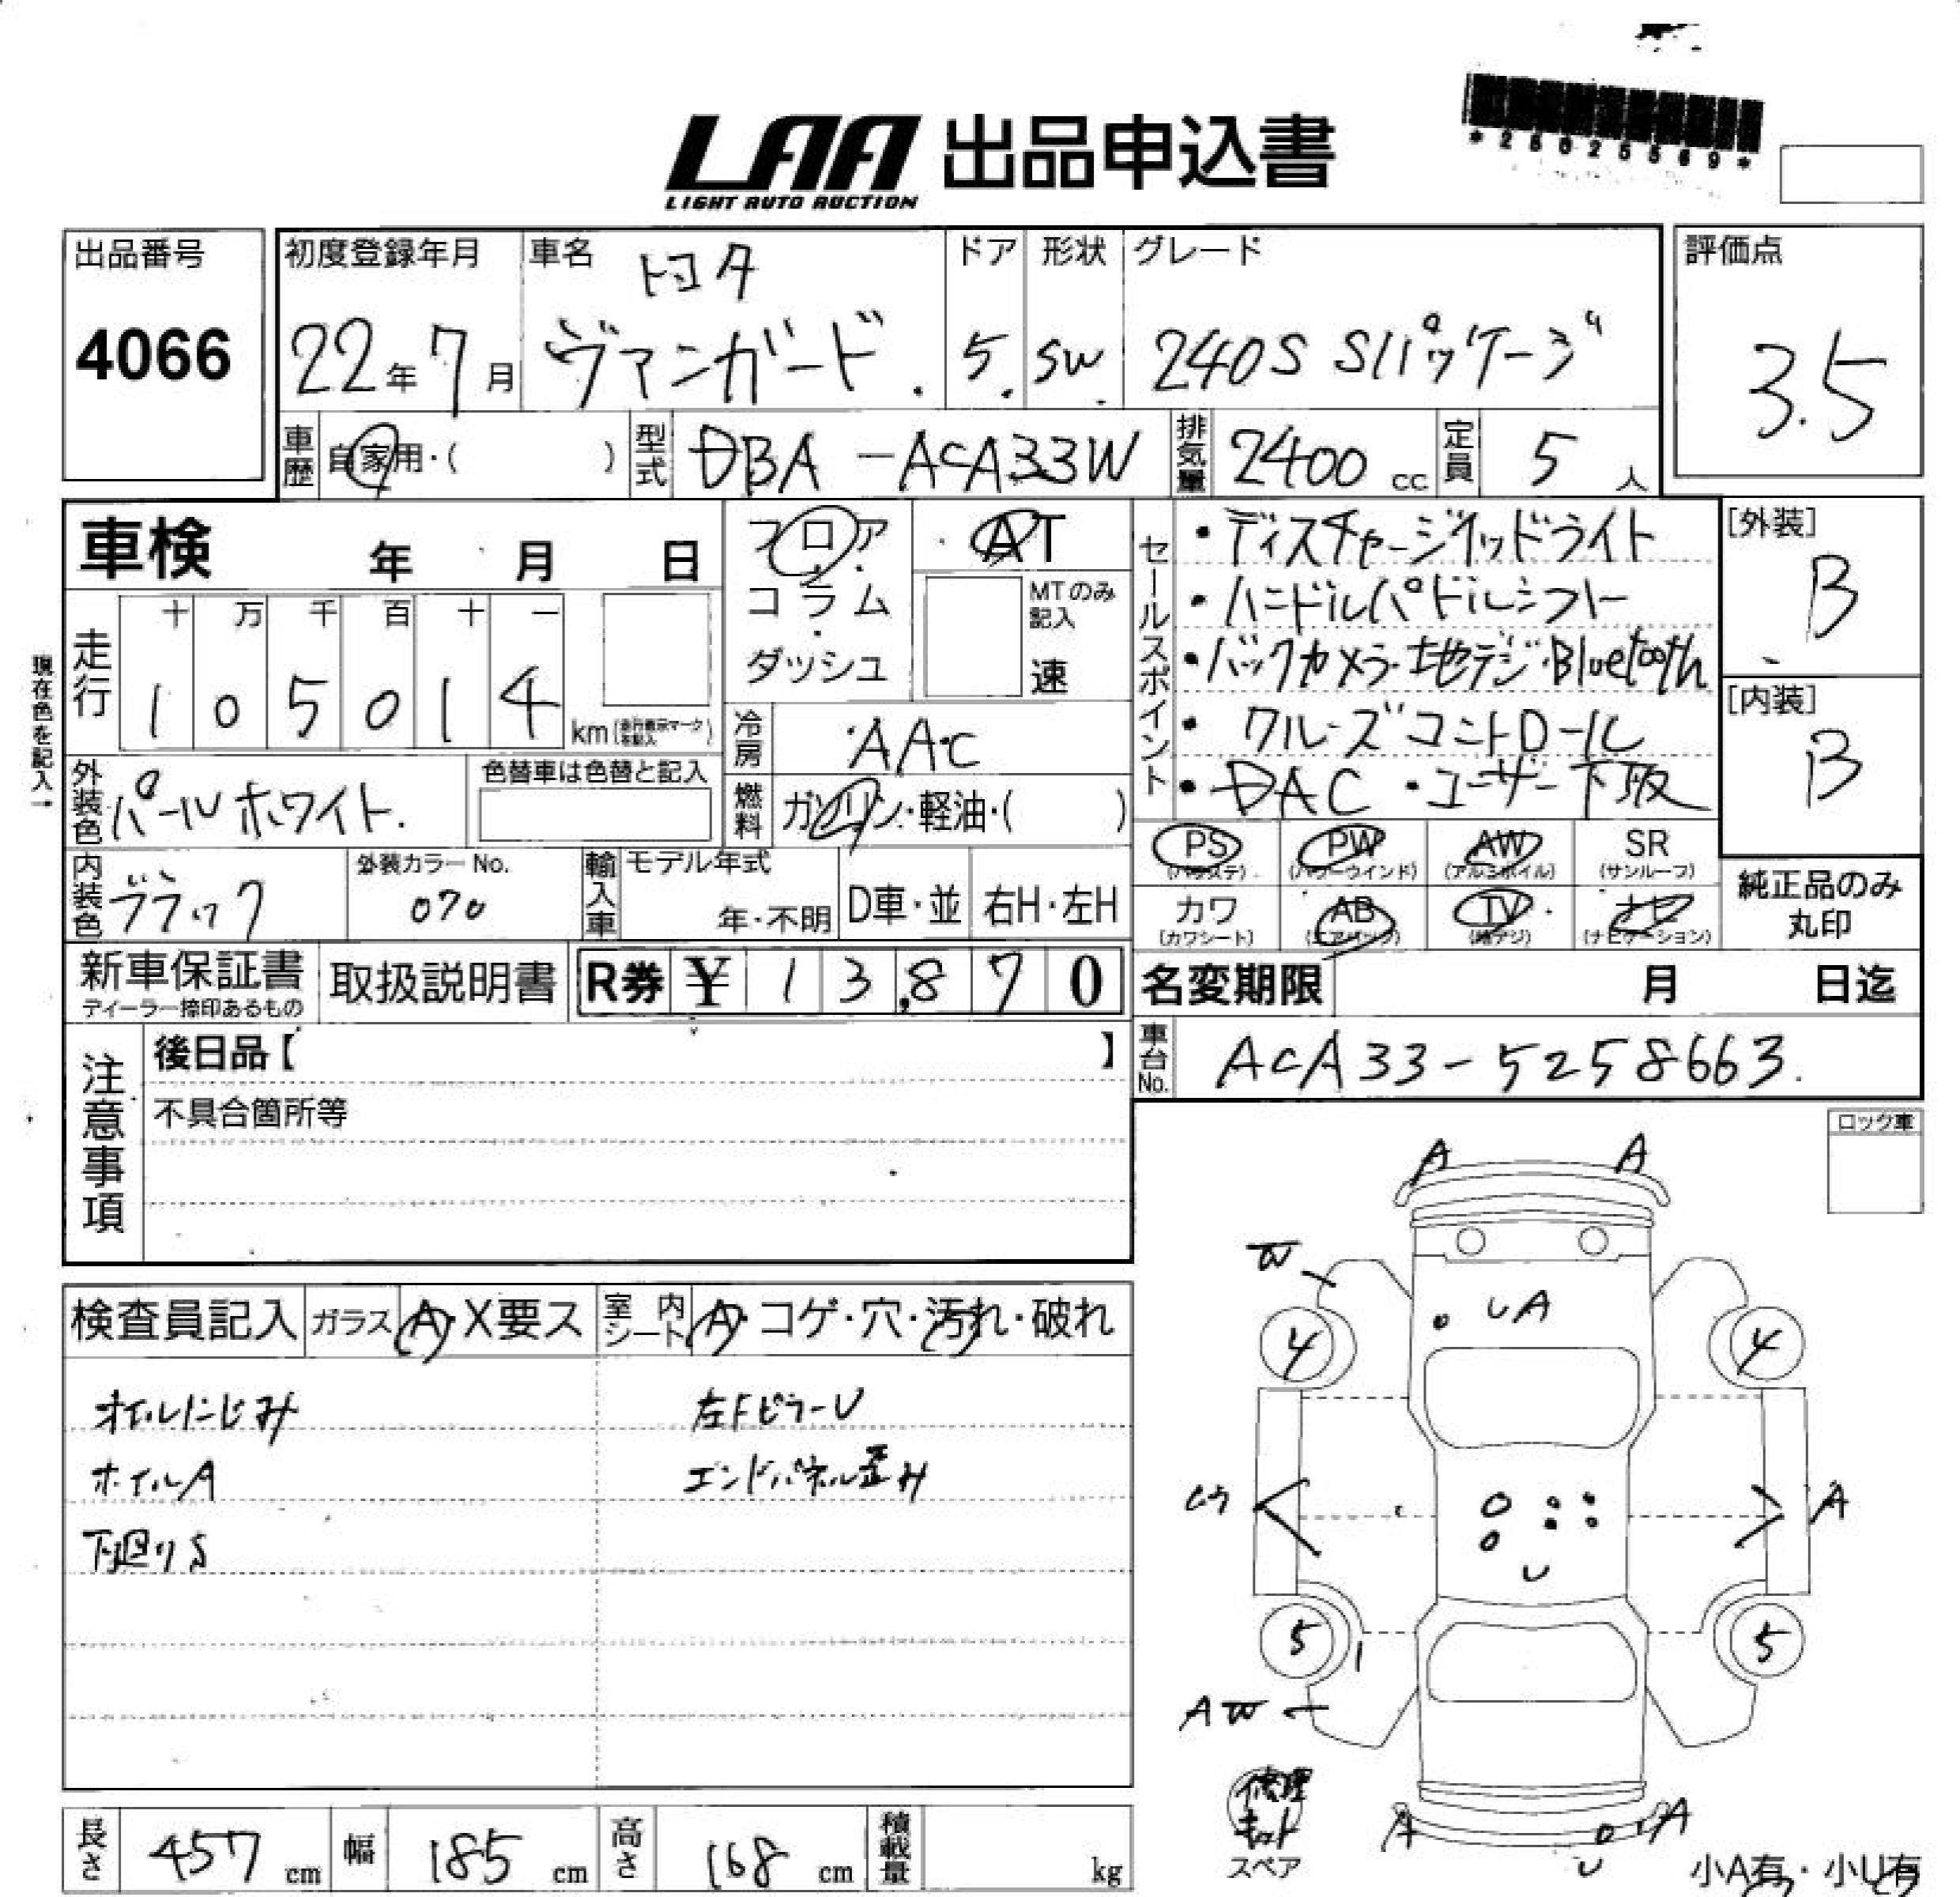 *28025569*
LAA 出品申込書
LIGHT AUTO AUCTION
出品番号
4066
初度登録年月
22年7月
車名
トヨタ
ヴァンガード
ドア
5
形状
SW
グレード
240S Sパッケージ
評価点
3.5
車歴 自家用・( )
型式 DBA-ACA33W
排気量 2400 cc
定員 5 人
車検 年 月 日
フロア・コラム・ダッシュ
AT
MTのみ記入
速
セールスポイント
・ディスチャージヘッドライト
・ハンドルパドルシフト
・バックカメラ・地デジ・Bluetooth
・クルーズコントロール
・DAC ・ユーザー下取
[外装]
B
[内装]
B
現在色を記入→
走行
十 万 千 百 十 一
1 0 5 0 1 4 km
冷房 AAC
外装色 パールホワイト
色替車は色替と記入
燃料 ガソリン・軽油・( )
PS (パワステ) PW (パワーウインド) AW (アルミホイル) SR (サンルーフ)
カワ (カワシート) AB (エアバッグ) TV (地デジ) ナビ (ナビゲーション)
純正品のみ丸印
内装色 ブラック
外装カラーNo.
070
輸入車 モデル年式
年・不明 D車・並 右H・左H
新車保証書
ディーラー捺印あるもの
取扱説明書
R券 ¥ 13,870
名変期限 月 日迄
車台No. ACA33-5258663
注意事項
後日品【 】
不具合箇所等
ロック車
検査員記入 ガラス A・X要ス 室内シート A・コゲ・穴・汚れ・破れ
オイルにじみ
左FピラーU
ホイルA
エンドパネル歪み
下廻りS
A A
W
U A
4 4
A
U
5 5
A W
修理キット
スペア
A A
U
小A有・小U有
長さ 457 cm
幅 185 cm
高さ 168 cm
積載量 kg